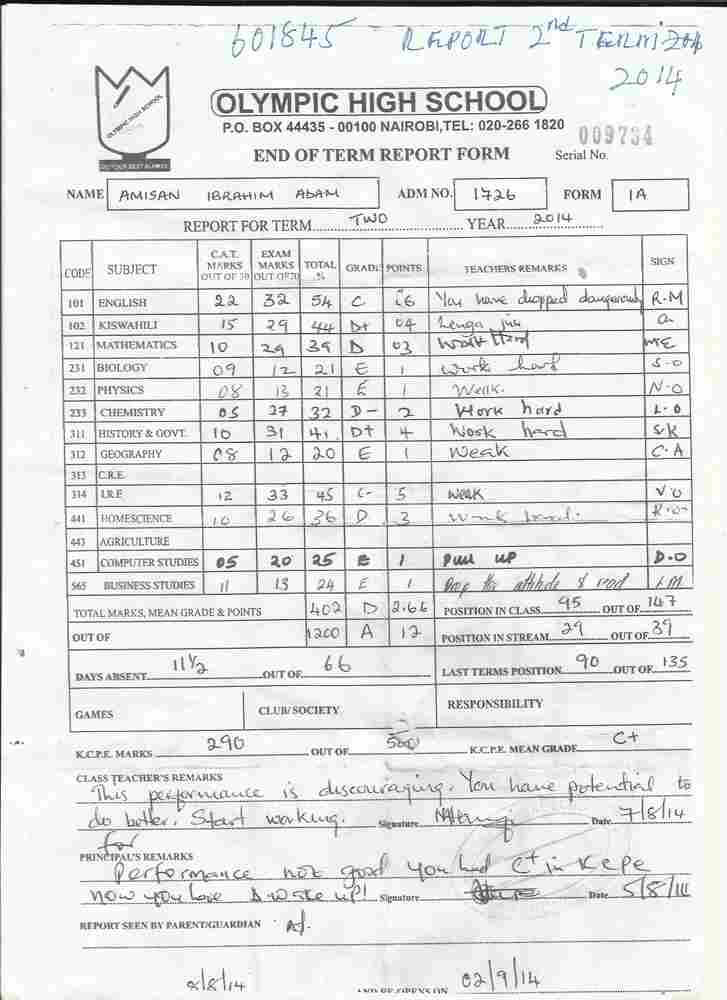 601845 REPORT 2nd TERM
2014
OLYMPIC HIGH SCHOOL
OLYMPIC HIGH SCHOOL
P.O. BOX 44435 - 00100 NAIROBI,TEL: 020-266 1820
009734
END OF TERM REPORT FORM Serial No.
NAME AMISAN IBRAHIM ADAM ADM NO. 1726 FORM 1A
REPORT FOR TERM TWO YEAR 2014
CODE SUBJECT C.A.T. MARKS OUT OF 30 EXAM MARKS OUT OF 70 TOTAL % GRADE POINTS TEACHERS REMARKS SIGN
101 ENGLISH 22 32 54 C 6 You have dropped dangerously R.M
102 KISWAHILI 15 29 44 D+ 04 Lenga juu
121 MATHEMATICS 10 29 39 D 03 Work Hard
231 BIOLOGY 09 12 21 E 1 Work hard S-O
232 PHYSICS 08 13 21 E 1 Weak. N-O
233 CHEMISTRY 05 27 32 D- 2 Work hard L-O
311 HISTORY & GOVT. 10 31 41 D+ 4 Work hard S.K
312 GEOGRAPHY 08 12 20 E 1 Weak C.A
313 C.R.E.
314 I.R.E 12 33 45 C- 5 Weak V.O
441 HOMESCIENCE 10 26 36 D 3 Work hard.
443 AGRICULTURE
451 COMPUTER STUDIES 05 20 25 E 1 Pull up D.O
565 BUSINESS STUDIES 11 13 24 E 1 Drop the attitude & read
TOTAL MARKS, MEAN GRADE & POINTS 402 D 2.66 POSITION IN CLASS 95 OUT OF 147
OUT OF 1200 A 12 POSITION IN STREAM 29 OUT OF 39
DAYS ABSENT 11½ OUT OF 66 LAST TERMS POSITION 90 OUT OF 135
GAMES CLUB/SOCIETY RESPONSIBILITY
K.C.P.E. MARKS 290 OUT OF 500 K.C.P.E. MEAN GRADE C+
CLASS TEACHER'S REMARKS
This performance is discouraging. You have potential to
do better. Start working. Signature Date 7/8/14
for
PRINCIPAL'S REMARKS
Performance not good you had C+ in Kcpe
now you have D wake up! Signature Date 5/8/14
REPORT SEEN BY PARENT/GUARDIAN
8/8/14 02/9/14